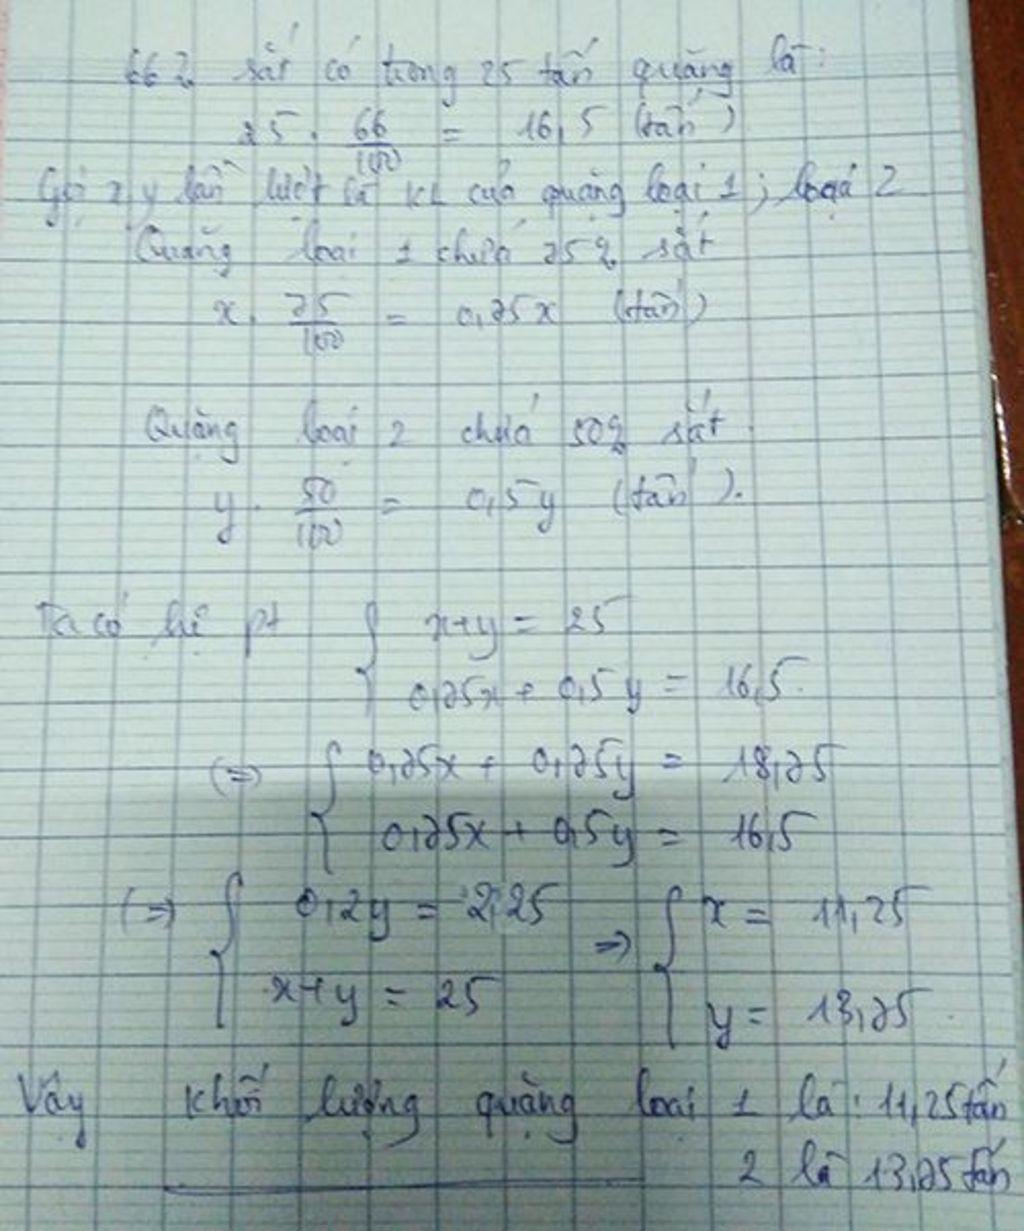 66% sắt có trong 25 tấn quặng là:
25 . 66/100 = 16,5 (tấn)
Gọi x y lần lượt là KL của quặng loại 1; loại 2
Quặng loại 1 chứa 75% sắt
x. 75/100 = 0,75x (tấn)
Quặng loại 2 chứa 50% sắt
y. 50/100 = 0,5y (tấn).
Ta có hệ pt { x+y = 25
0,75x + 0,5y = 16,5.
(=>) { 0,75x + 0,75y = 18,75
0,75x + 0,5y = 16,5
(=>) { 0,2y = 2,25 => { x = 11,25
x+y = 25 y = 13,75.
Vậy khối lượng quặng loại 1 là: 11,25 tấn
2 là 13,75 tấn